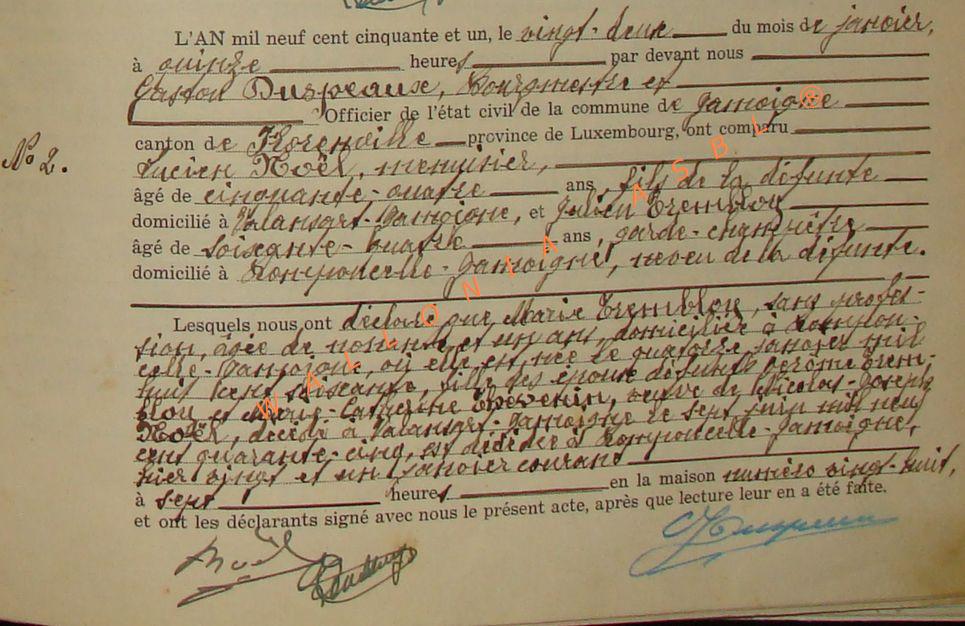 L'AN mil neuf cent cinquante et un, le vingt-deux du mois de janvier,
à quinze heures par devant nous
Gaston Duspeaux, Bourgmestre et
Officier de l'état civil de la commune de Jamoigne
canton de Florenville province de Luxembourg, ont comparu
No 2.
Lucien Noël, menuisier,
âgé de cinquante-quatre ans, fils de la défunte
domicilié à Valansart-Jamoigne, et Julien Tremblou
âgé de soixante-quatre ans, garde-champêtre
domicilié à Romponcelle-Jamoigne, neveu de la défunte.
Lesquels nous ont déclaré que Marie Tremblou, sans profes-
sion, âgée de nonante et un ans, domiciliée à Rompon-
celle-Jamoigne, où elle est née le quatorze janvier mil
huit cent soixante, fille des époux défunts Jérôme Trem-
blou et Marie-Catherine Thévenin, veuve de Nicolas-Joseph
Noël, décédé à Valansart-Jamoigne le sept juin mil neuf
cent quarante-cinq, est décédée à Romponcelle-Jamoigne,
hier vingt et un janvier courant
à sept heures en la maison numéro vingt-huit,
et ont les déclarants signé avec nous le présent acte, après que lecture leur en a été faite.
Noël
WALLONIA ASBL ®